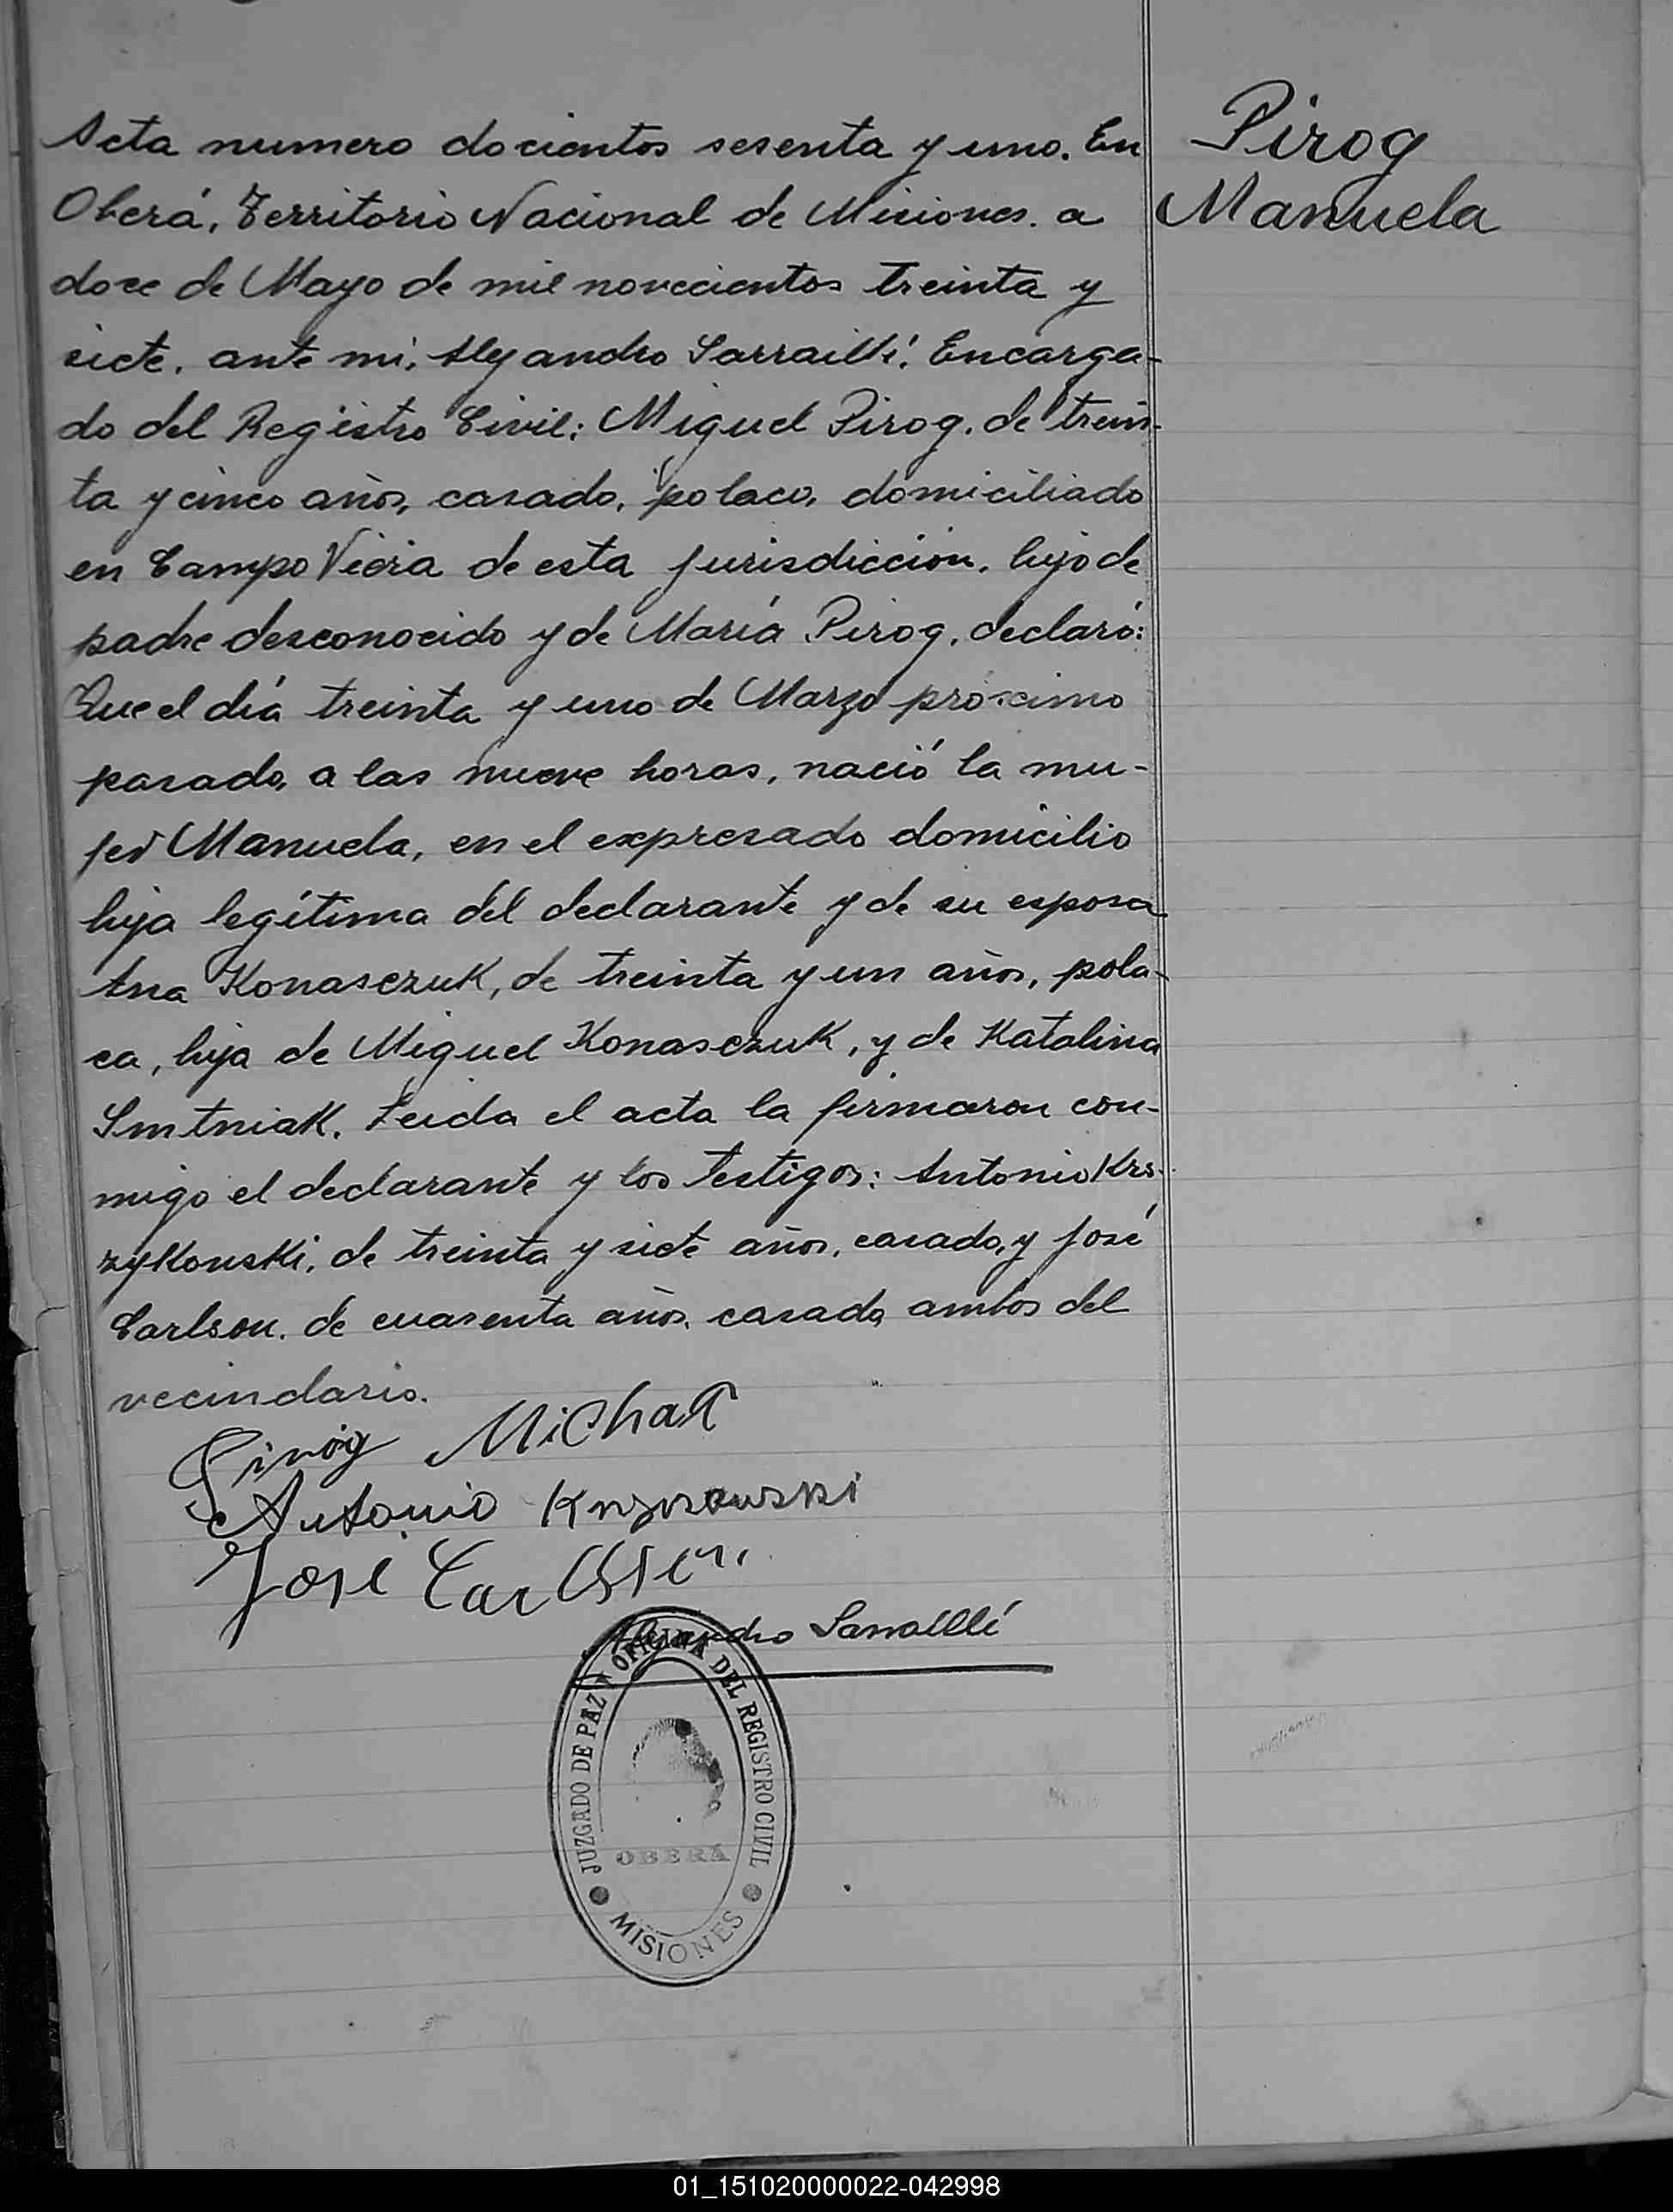 Pirog
Manuela
Acta numero docientos sesenta y uno. En
Oberá, Territorio Nacional de Misiones. a
doce de Mayo de mil novecientos treinta y
siete. ante mi, Alejandro Sarraillé, Encarga-
do del Registro Civil: Miguel Pirog. de trein-
ta y cinco años, casado, polaco, domiciliado
en Campo Viera de esta jurisdicción. hijo de
padre desconocido y de María Pirog, declaró:
Que el día treinta y uno de Marzo próximo
pasado, a las nueve horas, nació la mu-
jer Manuela, en el expresado domicilio
hija legítima del declarante y de su esposa
Ana Konasczuk, de treinta y un años, pola-
ca, hija de Miguel Konasczuk, y de Katalina
Smtniak. Leida el acta la firmaron con-
migo el declarante y los testigos: Antonio Krs-
zykouski, de treinta y siete años, casado, y José
Carlson. de cuarenta años. casado, ambos del
vecindario.
Piróg Michał
Antonio
José Carlsson
Alejandro Sarraillé
JUZGADO DE PAZ Y OFICINA DEL REGISTRO CIVIL
OBERÁ
MISIONES
01_151020000022-042998